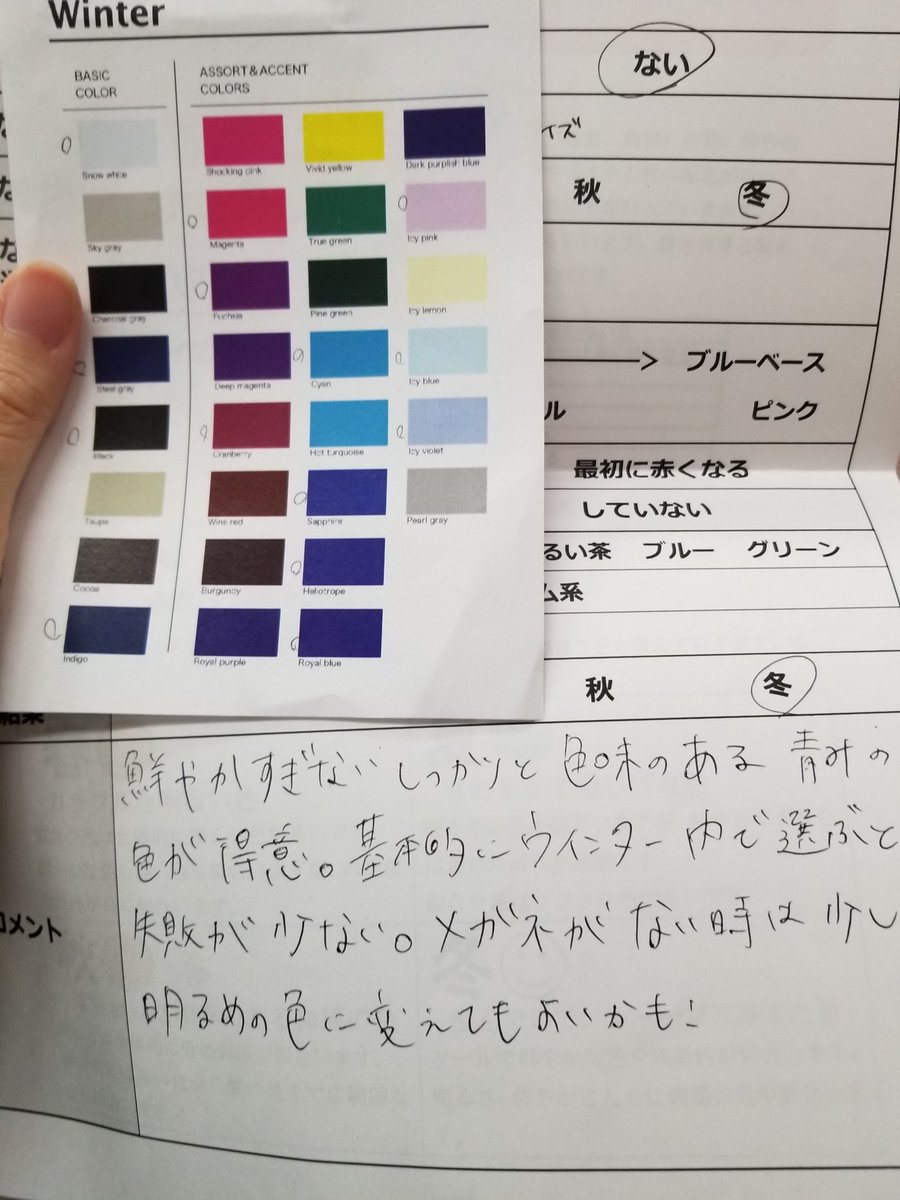 Winter
BASIC
COLOR
ASSORT&ACCENT
COLORS
Snow white
Shocking pink
Vivid yellow
Dark purplish blue
Sky gray
Magenta
True green
Icy pink
Charcoal gray
Fuchsia
Pine green
Icy lemon
Steel gray
Deep magenta
Cyan
Icy blue
Black
Cranberry
Hot turquoise
Icy violet
Taupe
Wine red
Sapphire
Pearl gray
Cocoa
Burgundy
Heliotrope
Indigo
Royal purple
Royal blue
ない
イズ
秋 冬
ブルーベース
ル ピンク
最初に赤くなる
していない
るい茶 ブルー グリーン
ム系
秋 冬
結果
コメント
鮮やかすぎない しっかりと色味のある青みの
色が得意。基本的にウィンター内で選ぶと
失敗が少ない。メガネがない時は少し
明るめの色に変えてもよいかも!